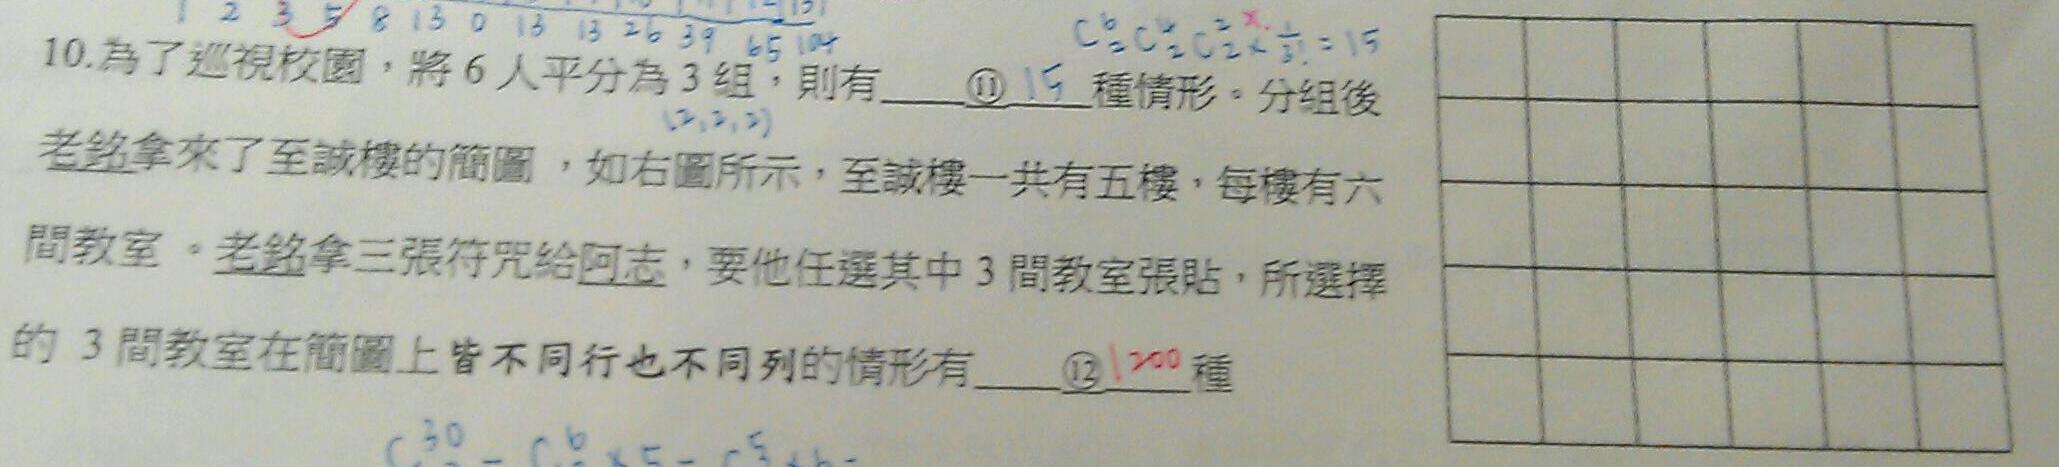 1 2 3 5 8 13 0 13 13 26 39 65 104
C⁶₂C⁴₂C²₂×1/3!=15
10.為了巡視校園，將6人平分為3組，則有____⑪ 15 種情形。分組後
(2,2,2)
老銘拿來了至誠樓的簡圖，如右圖所示，至誠樓一共有五樓，每樓有六
間教室。老銘拿三張符咒給阿志，要他任選其中3間教室張貼，所選擇
的 3間教室在簡圖上皆不同行也不同列的情形有____⑫1200種